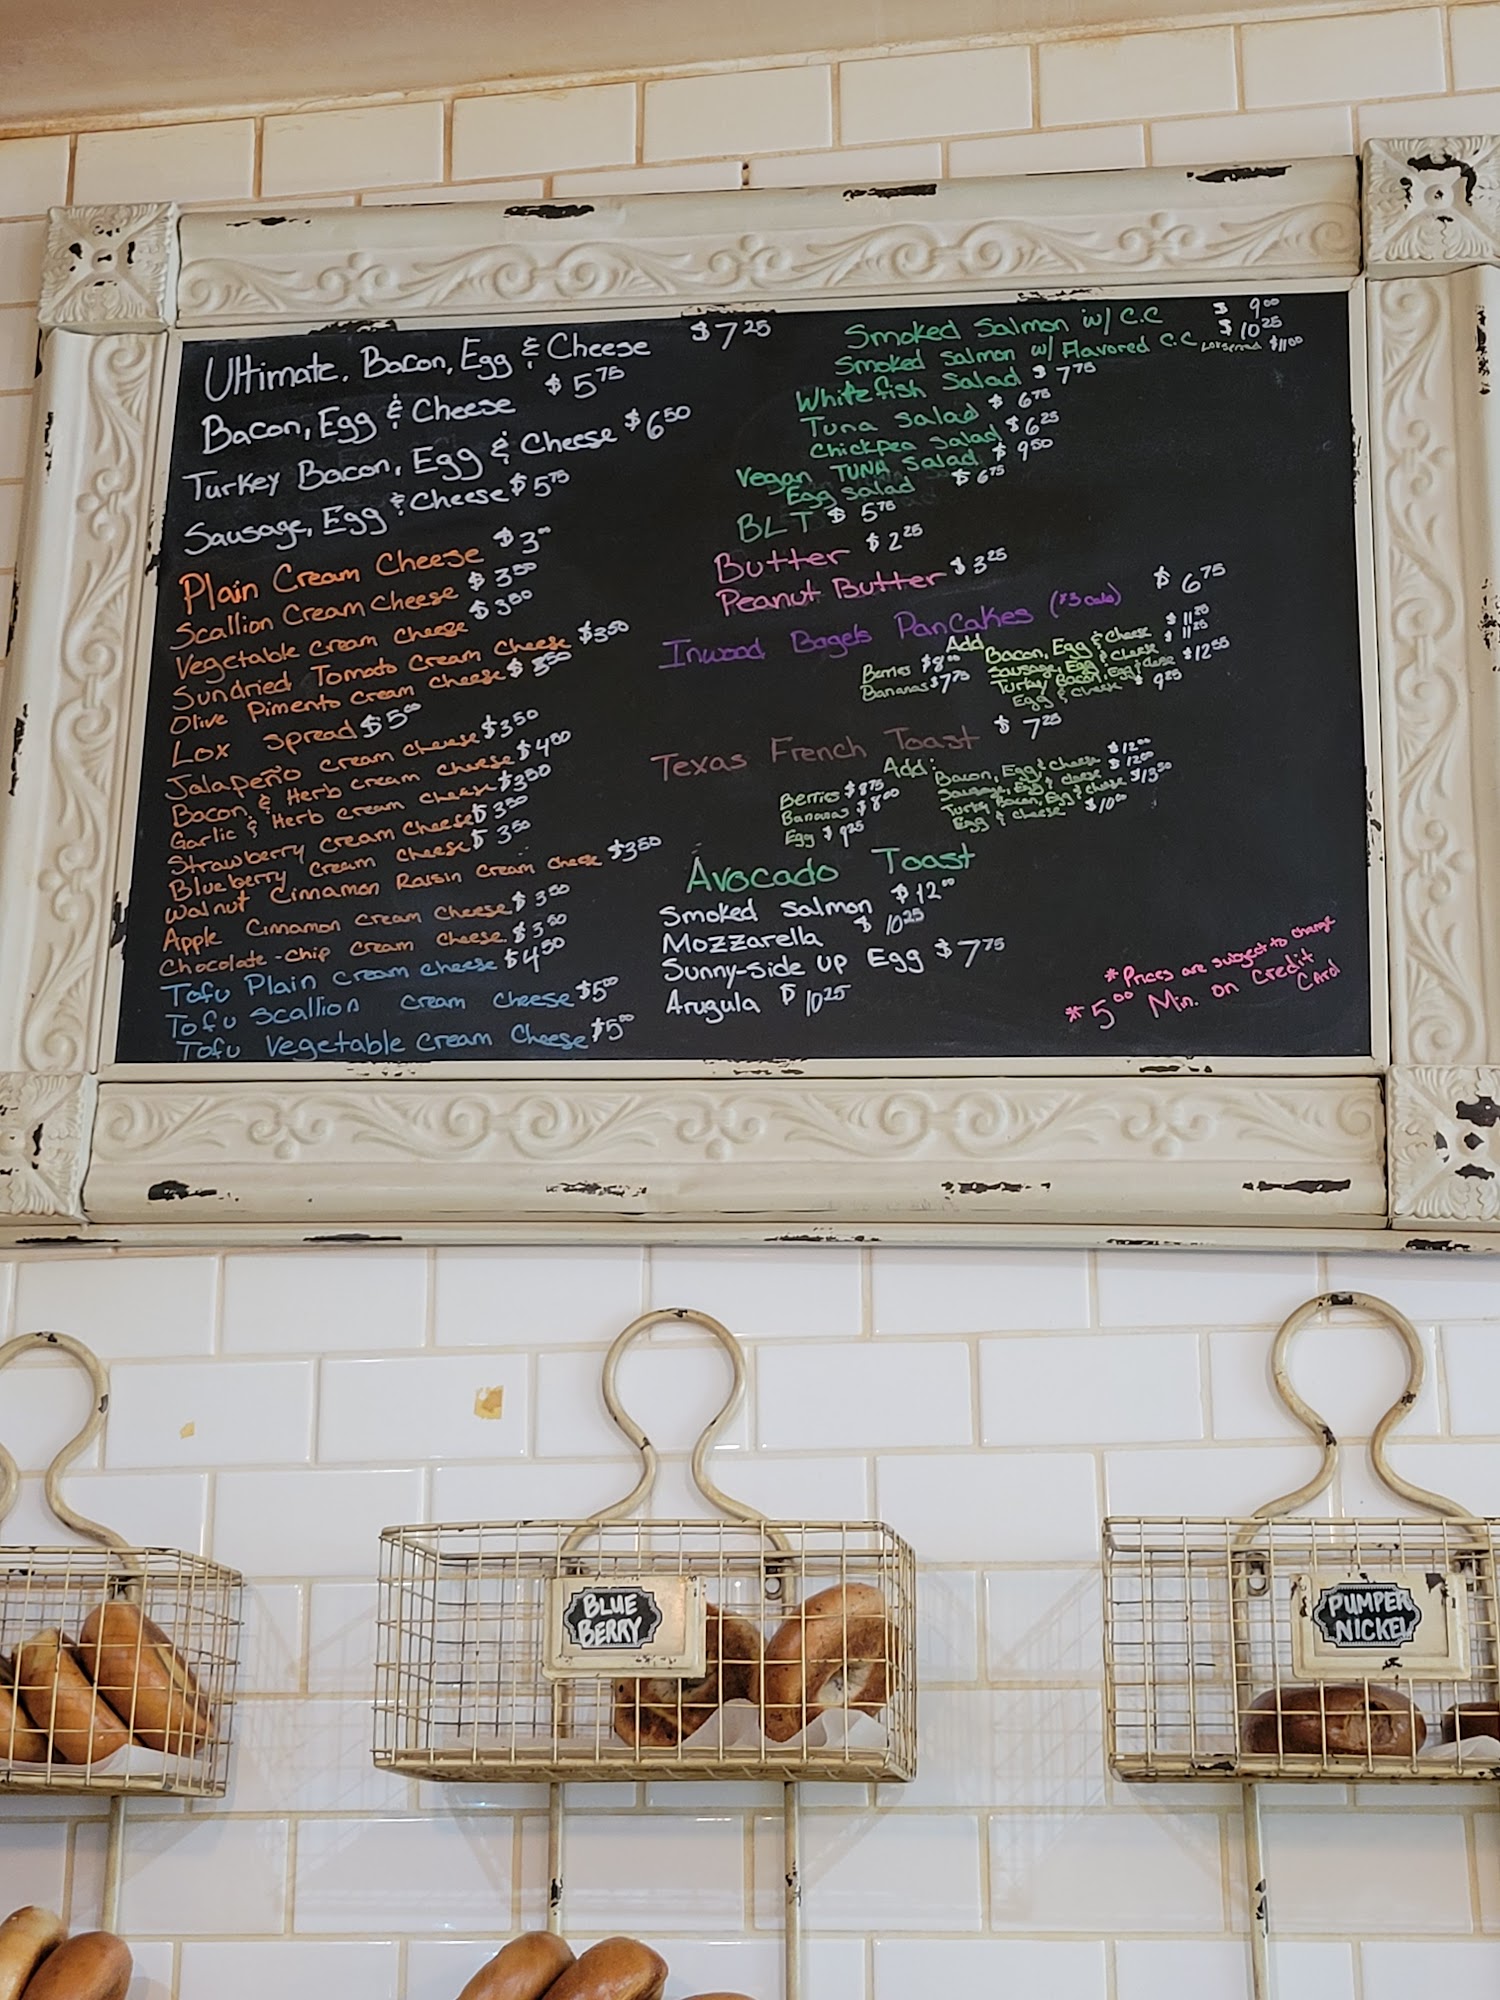 Ultimate, Bacon, Egg & Cheese $7 25
Bacon, Egg & Cheese $5 75
Turkey Bacon, Egg & Cheese $6 50
Sausage, Egg & Cheese $5 75
Plain Cream Cheese $3 00
Scallion Cream Cheese $3 50
Vegetable Cream Cheese $3 50
Sundried Tomato Cream Cheese $3 50
Olive Pimento Cream Cheese $3 50
Lox Spread $5 00
Jalapeño Cream Cheese $3 50
Bacon & Herb Cream Cheese $4 00
Garlic & Herb Cream Cheese $3 50
Strawberry Cream Cheese $3 50
Blueberry Cream Cheese $3 50
Walnut Cinnamon Raisin Cream Cheese $3 50
Apple Cinnamon Cream Cheese $3 50
Chocolate-Chip Cream Cheese $3 50
Tofu Plain Cream Cheese $4 50
Tofu Scallion Cream Cheese $5 00
Tofu Vegetable Cream Cheese $5 00
Smoked Salmon w/ C.C $ 9 00
Smoked Salmon w/ Flavored C.C $ 10 25
Lox spread $11 00
Whitefish Salad $ 7 75
Tuna Salad $ 6 75
Chickpea Salad $ 6 25
Vegan TUNA Salad $ 9 50
Egg Salad $ 6 75
BLT $ 5 75
Butter $ 2 25
Peanut Butter $ 3 25
Inwood Bagels Pancakes $ 6 75
Add
Berries $8 00
Bananas $7 75
Bacon, Egg & Cheese $ 11 25
Sausage, Egg & Cheese $ 11 25
Turkey Bacon, Egg & Cheese
Egg & Cheese $ 9 25
Texas French Toast $ 7 25
Add:
Berries $ 8 75
Bananas $ 8 00
Egg $ 9 25
Bacon, Egg & Cheese $ 12 00
Sausage, Egg & Cheese $ 12 00
Turkey Bacon, Egg & Cheese $13 50
Egg & Cheese $10 00
Avocado Toast
Smoked Salmon $ 12 00
Mozzarella $ 10 25
Sunny-side up Egg $ 7 75
Arugula $ 10 25
* Prices are subject to change
* 5 00 Min. on Credit
Card
BLUE
BERRY
PUMPER
NICKEL